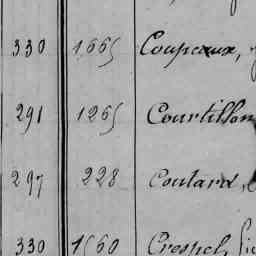 330 1665 Coupeaux,
291 1265 Courtillon
297 228 Coutard,
330 1560 Crespel,